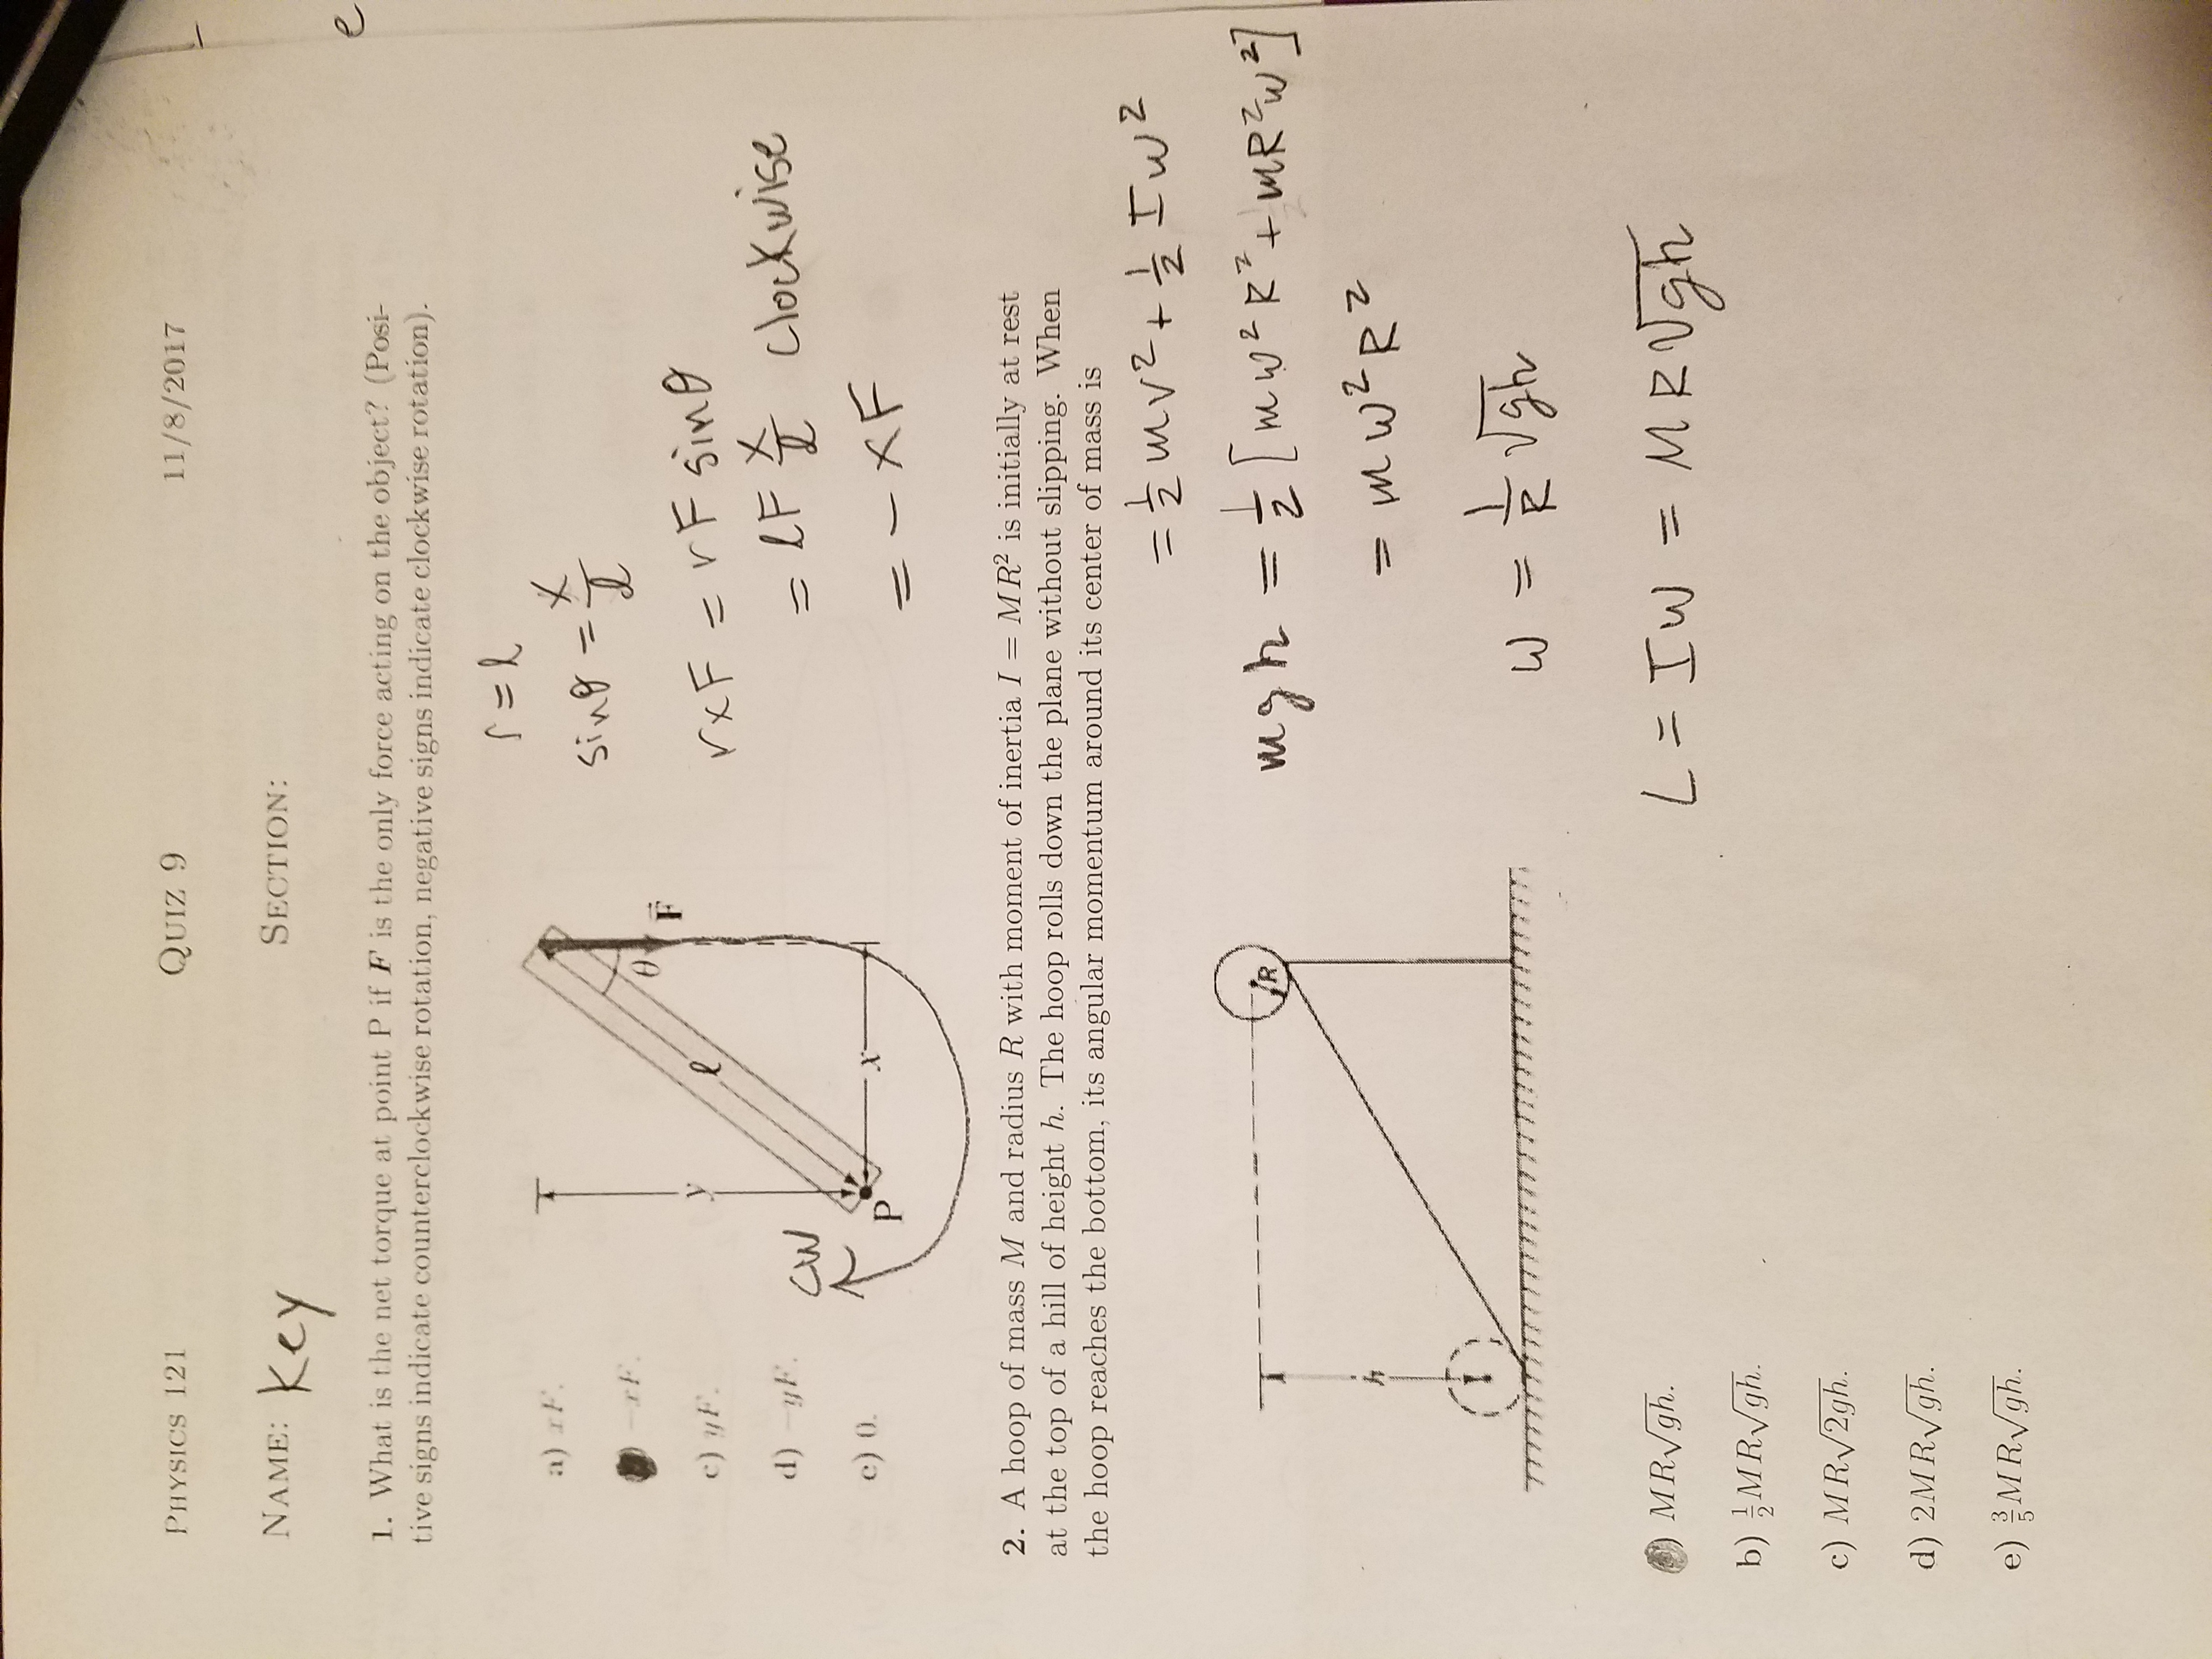 PHYSICS 121 QUIZ 9 11/8/2017
NAME: Key SECTION:
1. What is the net torque at point P if F is the only force acting on the object? (Posi-
tive signs indicate counterclockwise rotation, negative signs indicate clockwise rotation).
r = l
a) xF.
sinθ = x/l
−xF.
θ
F⃗
r×F = rF sinθ
c) yF.
y
l
= lF x/l clockwise
d) −yF.
CW
e) 0.
P
x
= − xF
2. A hoop of mass M and radius R with moment of inertia I = MR² is initially at rest
at the top of a hill of height h. The hoop rolls down the plane without slipping. When
the hoop reaches the bottom, its angular momentum around its center of mass is
= 1/2 mv² + 1/2 Iω²
R
mgh = 1/2 [mω²R² + mR²ω²]
h
= mω²R²
ω = 1/R √gh
) MR√gh.
L = Iω = MR√gh
b) 1/2MR√gh.
c) MR√2gh.
d) 2MR√gh.
e) 3/5MR√gh.
e